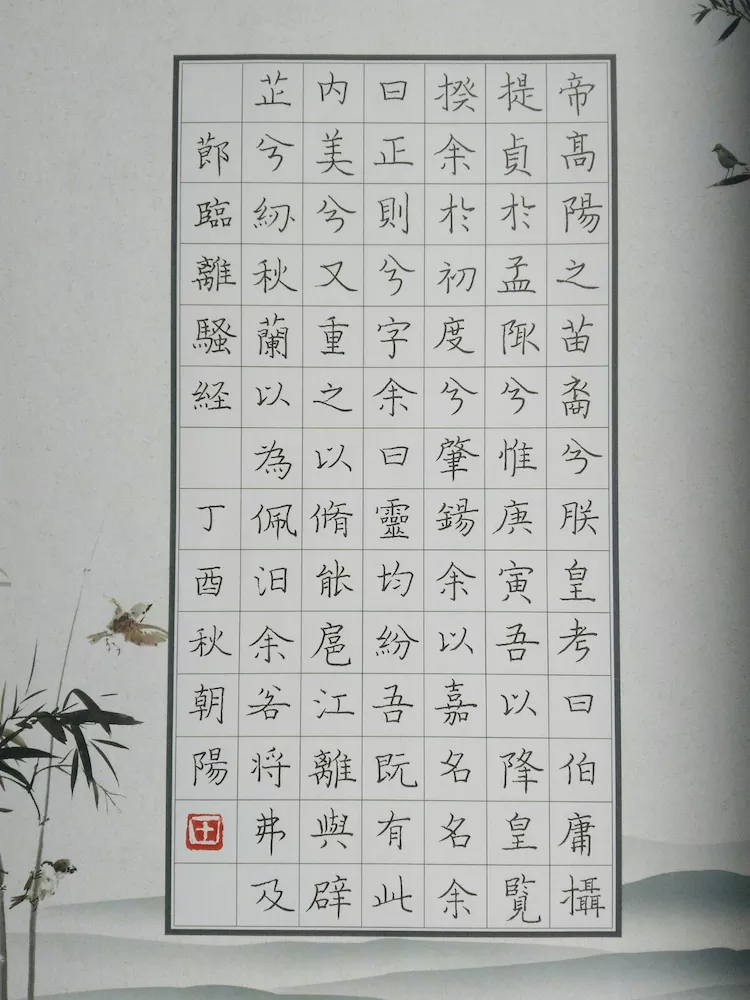 帝高陽之苗裔兮朕皇考曰伯庸攝
提貞於孟陬兮惟庚寅吾以降皇覽
揆余於初度兮肇錫余以嘉名名余
曰正則兮字余曰靈均紛吾既有此
内美兮又重之以脩能扈江離與辟
芷兮紉秋蘭以為佩汩余若将弗及
節臨離騷経 丁酉秋朝陽